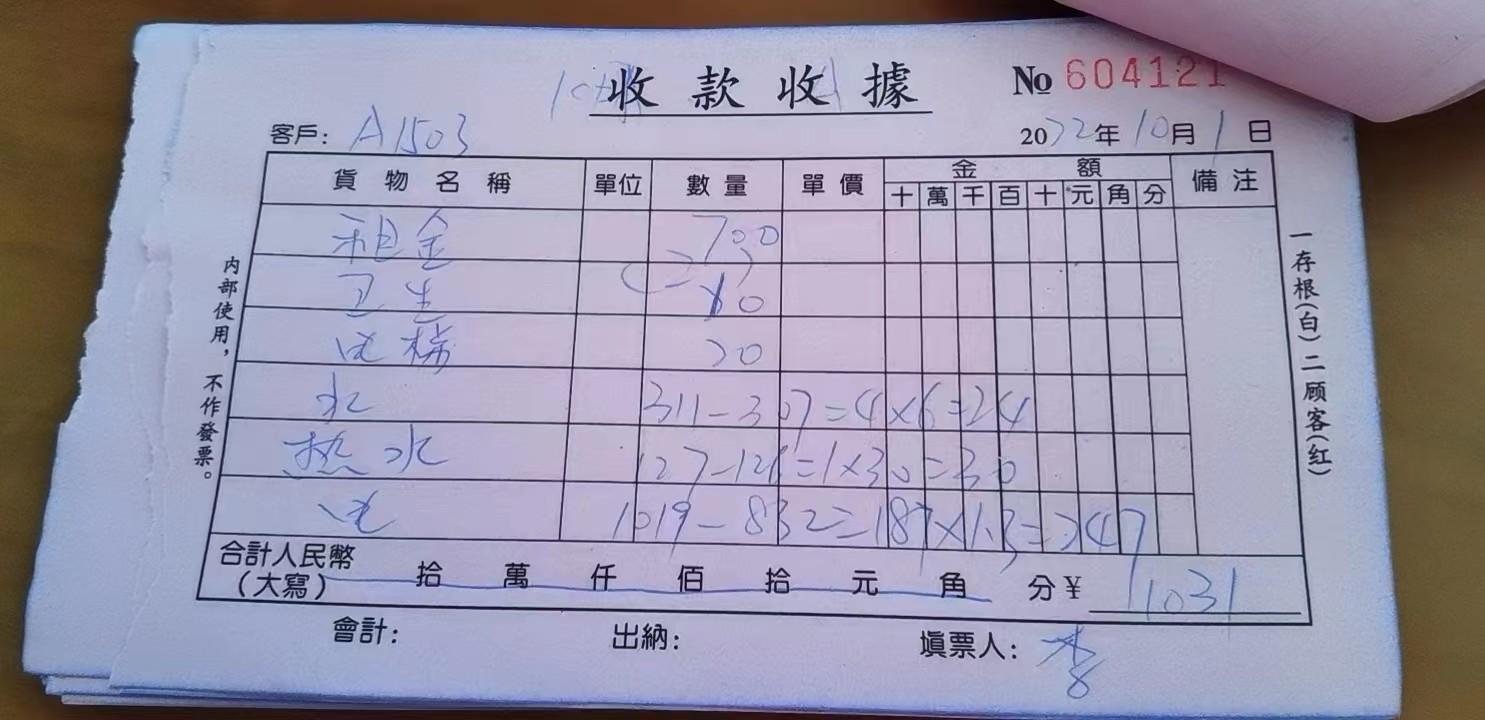 收款收據
№ 604121
客戶: A1503
2022年10月1日
貨物名稱 單位 數量 單價 金額 備注
十 萬 千 百 十 元 角 分
租金 700
卫生 10
电梯 20
水 311-307=4×6=24
热水 127-126=1×30=30
电 1019-832=187×1.3=247
合計人民幣
(大寫) 拾 萬 仟 佰 拾 元 角 分 ¥ 1031
會計: 出納: 填票人: 李
内部使用，不作發票。
一存根(白)二顾客(红)